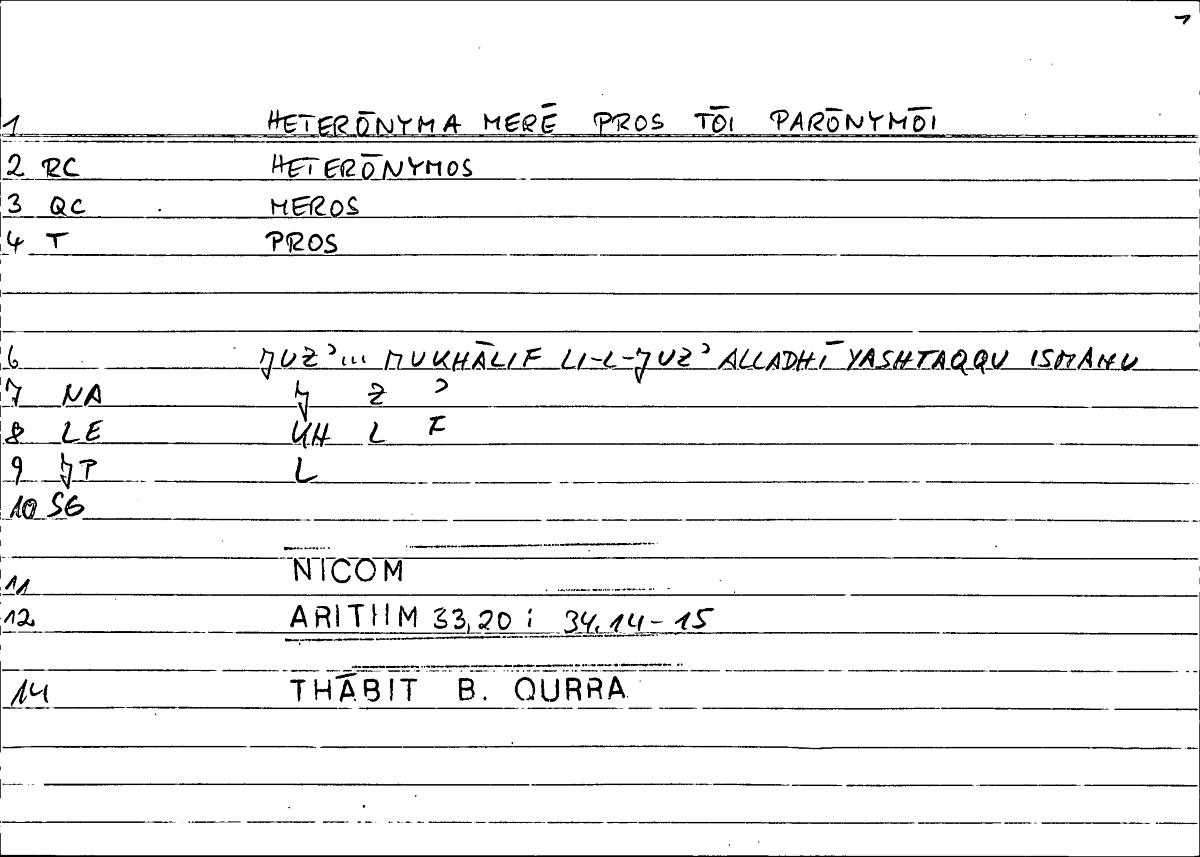 1
1 HETERŌNYMA MERĒ PROS TŌI PARŌNYMŌI
2 RC HETERŌNYMOS
3 QC MEROS
4 T PROS
6 JUZʾ... MUKHĀLIF LI-L-JUZʾ ALLADHĪ YASHTAQQU ISMAHU
7 NA J Z ʾ
8 LE KH L F
9 JP L
10 SG
11 NICOM
12 ARITHM 33,20 ; 34.14-15
14 THĀBIT B. QURRA